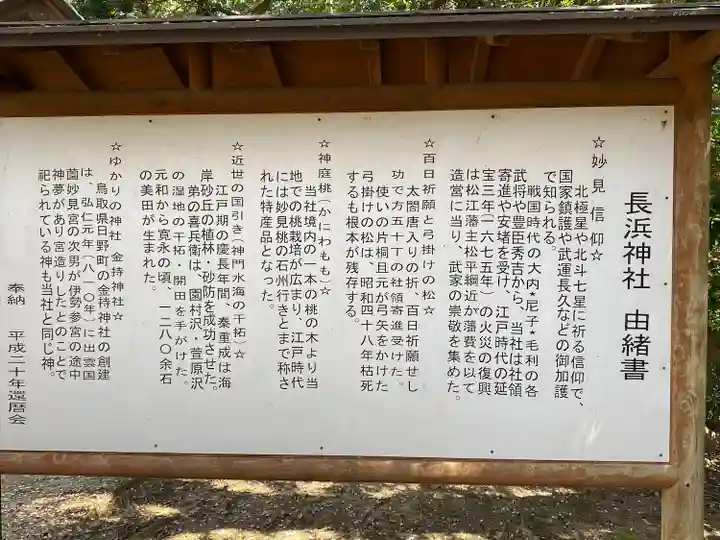 長浜神社 由緒書
☆妙見信仰☆
北極星や北斗七星に祈る信仰で、
国家鎮護や武運長久などの御加護
で知られる。
戦国時代の大内・尼子・毛利の各
武将や豊臣秀吉から、当社は社領
寄進や安堵を受け、江戸時代の延
宝三年(一六七五年)の火災の復興
は松江藩主松平綱近か藩費を以て
造営に当り、武家の崇敬を集めた。
☆百日祈願と弓掛けの松☆
太閤唐入りの折、百日祈願せし
功で方五十丁の社領寄進受けた。
使いの片桐且元が弓矢をかけた
弓掛けの松は、昭和四十八年枯死
するも根本が残存する。
☆神庭桃(かにわもも)☆
当社境内の一本の桃の木より当
地での桃栽培が広まり、江戸時代
には妙見桃の石州行きとまで称さ
れた特産品となった。
☆近世の国引き(神門水海の干拓)☆
江戸期の慶長年間、秦重成は海
岸砂丘の植林・砂防を成功させた。
弟の喜兵衛は、園村沢・萱原沢
の湿地の干拓・開田を手がけた。
元和から寛永の頃、一二八〇余石
の美田が生まれた。
☆ゆかりの神社 金持神社☆
鳥取県日野町の金持神社の創建
は、弘仁元年(八一〇年)に出雲国
薗妙見宮の次男が伊勢参宮の途中
神夢があり宮造りしたとのことで
祀られている神も当社と同じ神。
奉納 平成二十年還暦会